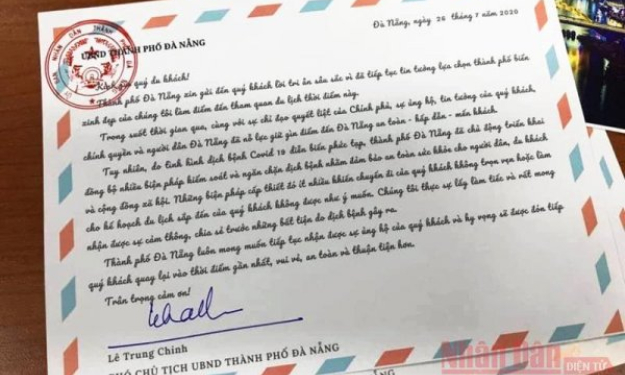 Đà Nẵng, ngày 26 tháng 7 năm 2020
UBND THÀNH PHỐ ĐÀ NẴNG
Kính gửi quý du khách!
Thành phố Đà Nẵng xin gửi đến quý khách lời tri ân sâu sắc vì đã tiếp tục tin tưởng lựa chọn thành phố biển
xinh đẹp của chúng tôi làm điểm đến tham quan du lịch thời điểm này.
Trong suốt thời gian qua, cùng với sự chỉ đạo quyết liệt của Chính phủ, sự ủng hộ, tin tưởng của quý khách,
chính quyền và người dân Đà Nẵng đã nỗ lực giữ gìn điểm đến Đà Nẵng an toàn - hấp dẫn - mến khách.
Tuy nhiên, do tình hình dịch bệnh Covid 19 diễn biến phức tạp, thành phố Đà Nẵng đã chủ động triển khai
đồng bộ nhiều biện pháp kiểm soát và ngăn chặn dịch bệnh nhằm đảm bảo an toàn sức khỏe cho người dân, du khách
và cộng đồng xã hội. Những biện pháp cấp thiết đó ít nhiều khiến chuyến đi của quý khách không trọn vẹn hoặc làm
cho kế hoạch du lịch sắp đến của quý khách không được như ý muốn. Chúng tôi thực sự lấy làm tiếc và rất mong
nhận được sự cảm thông, chia sẻ trước những bất tiện do dịch bệnh gây ra.
Thành phố Đà Nẵng luôn mong muốn tiếp tục nhận được sự ủng hộ của quý khách và hy vọng sẽ được đón tiếp
quý khách quay lại vào thời điểm gần nhất, vui vẻ, an toàn và thuận tiện hơn.
Trân trọng cảm ơn!
Lê Trung Chinh
PHÓ CHỦ TỊCH UBND THÀNH PHỐ ĐÀ NẴNG
Nhân Dân
ĐIỆN TỬ